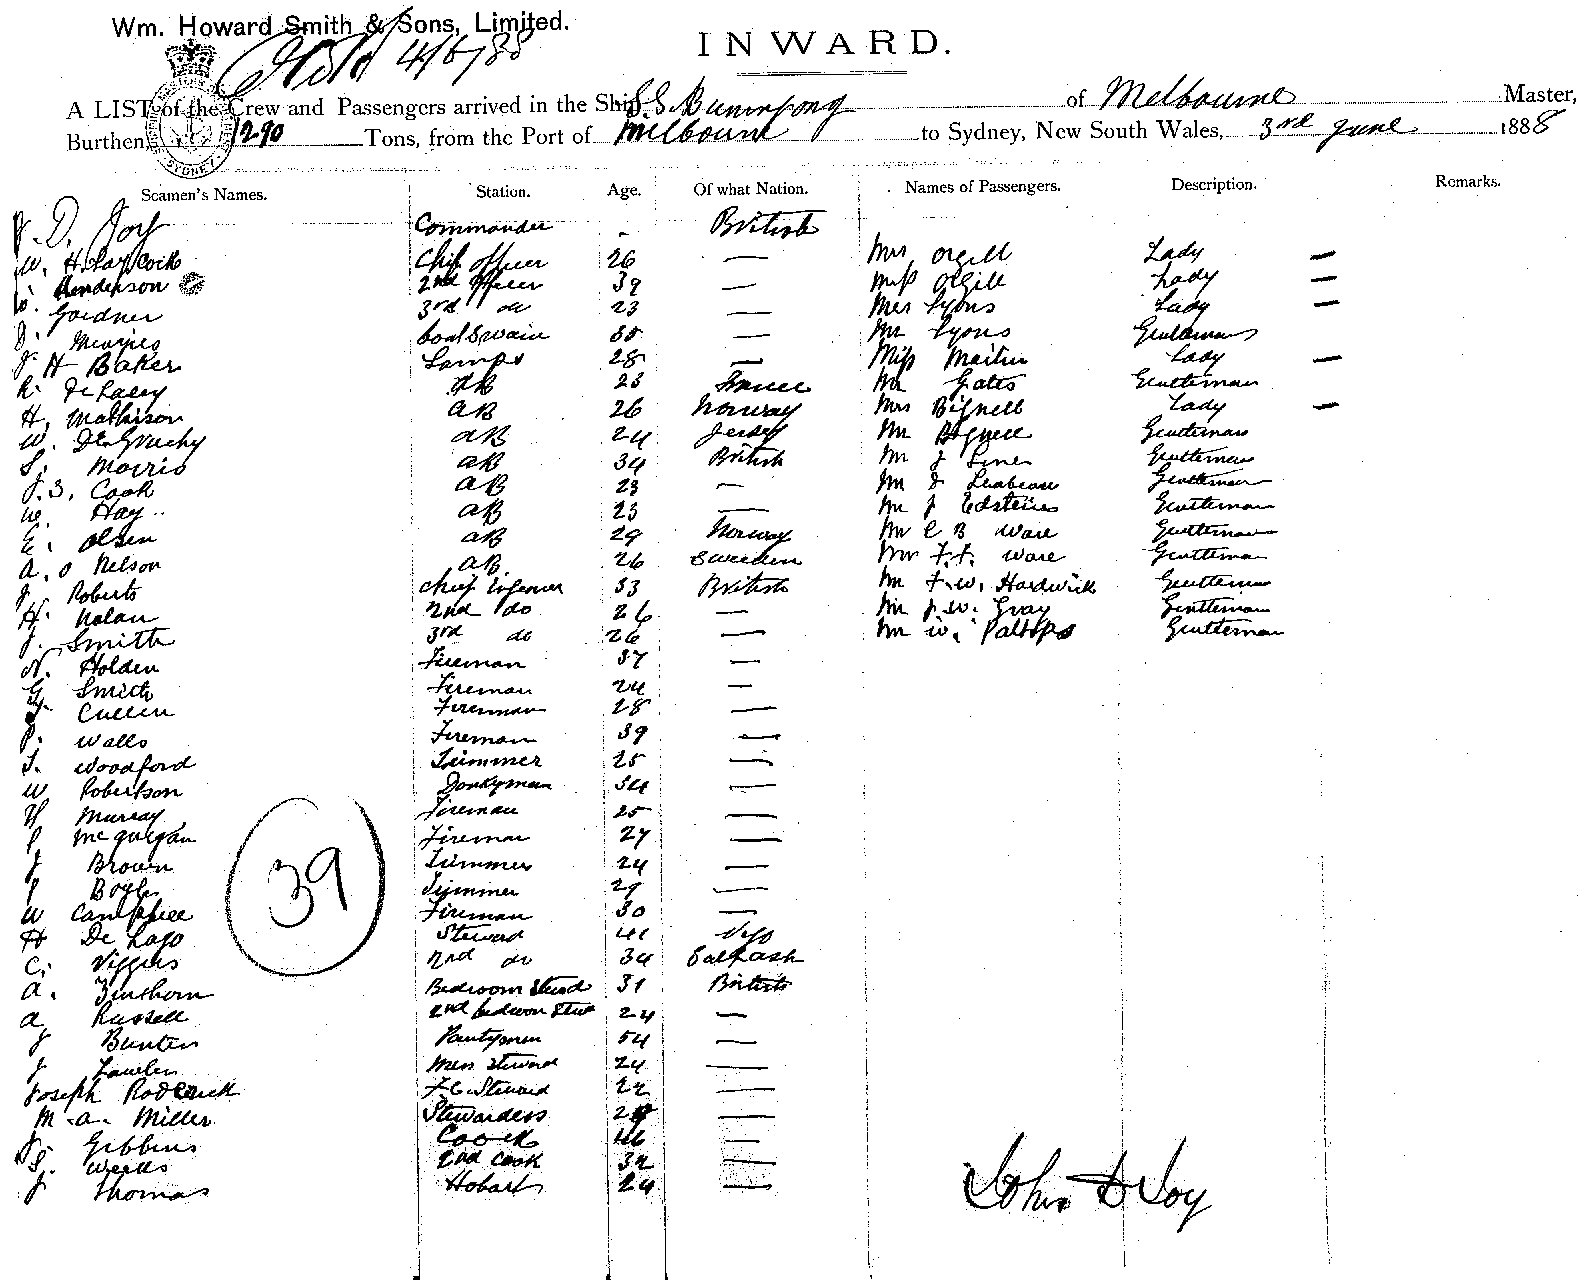 Wm. Howard Smith & Sons, Limited.
4/6/88
INWARD.
A LIST of the Crew and Passengers arrived in the Ship S.S. of Melbourne Master,
Burthen, 1290 Tons, from the Port of Melbourne to Sydney, New South Wales, 3rd June 1888
SYDNEY
Seamen's Names. Station. Age. Of what Nation. Names of Passengers. Description. Remarks.
J. D. Joy Commander - British
W. H. Laycock Chief officer 26 — Mrs Orgill Lady —
Henderson 2nd officer 39 — Miss Orgill Lady —
Gardner 3rd do 23 — Mrs Lyons Lady —
Menzies boatswain 35 — Mr Lyons Gentleman
J. H Baker Lamps 28 — Miss Martin Lady —
AB 23 France Mr Gates Gentleman
H. Mathison AB 26 Norway Mrs Bignell Lady —
W. De Gruchy AB 24 Jersey Mr Bignell Gentleman
S. Morris AB 34 British Mr J Gentleman
Cook AB 23 — Mr Gentleman
W. Hay AB 23 — Mr J Gentleman
E. Olsen AB 29 Norway Mr C B Ware Gentleman
A. O Nelson AB. 26 Sweden Mr F. F. Ware Gentleman
J. Roberts Chief Engineer 33 British Mr F. W. Hardwick Gentleman
H. Nolan 2nd do 26 — Mr J. W. Gray Gentleman
J. Smith 3rd do 26 — Mr W. Gentleman
N. Holden Fireman 37 —
G. Smith Fireman 24 —
Cullen Fireman 28 —
P. Walls Fireman 39 —
T. Woodford Trimmer 25 —
W Robertson Donkyman 34 —
H Murray Fireman 25 —
P McGuigan Fireman 27 —
J Brown Trimmer 24 —
P Boyle Trimmer 29 —
W Campbell Fireman 30 —
39
H De Lago Steward 41
C. Viggers 2nd do 34
A. Bedroom Steud 31 British
A Russell 2nd bedroom Stud 24 —
J Bunten Pantryman 54 —
J Lawler Mess Steward 24 —
Joseph Roderick F.C. Steward 22 —
M. A. Miller Stewardess —
J. Gibbins Cook 46 —
S. Weeks 2nd Cook 32 —
J Thomas 24 —
John D Joy